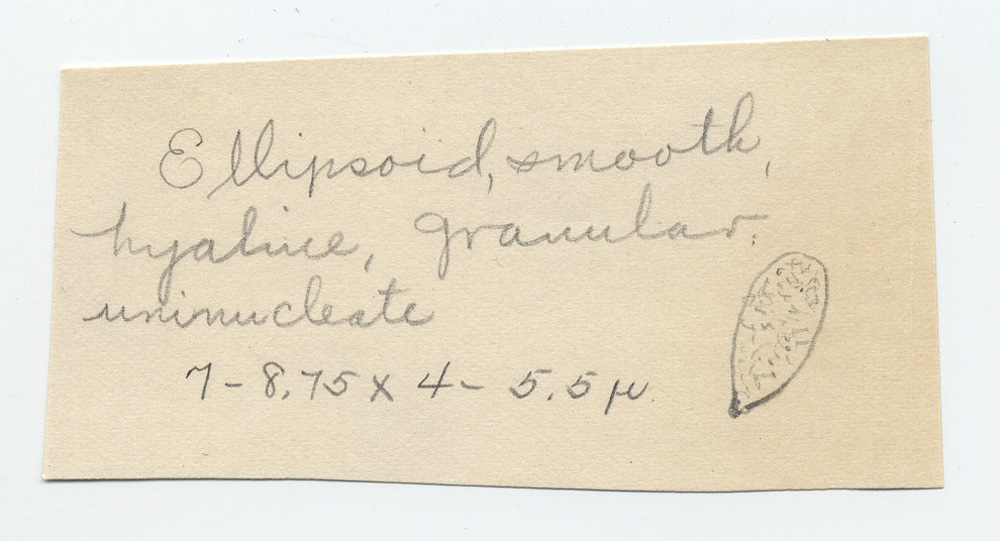 Ellipsoid, smooth,
hyaline, granular.
uninucleate
7 - 8.75 x 4 - 5.5 µ.